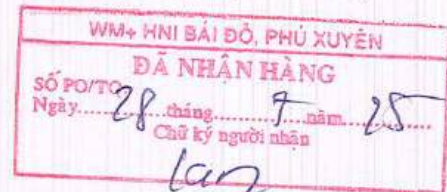 WM+ HNI BÁI ĐỎ, PHÚ XUYÊN
ĐÃ NHẬN HÀNG
SỐ PO/TO
Ngày.....28.....tháng.....7.....năm.....25
Chữ ký người nhận
Lan